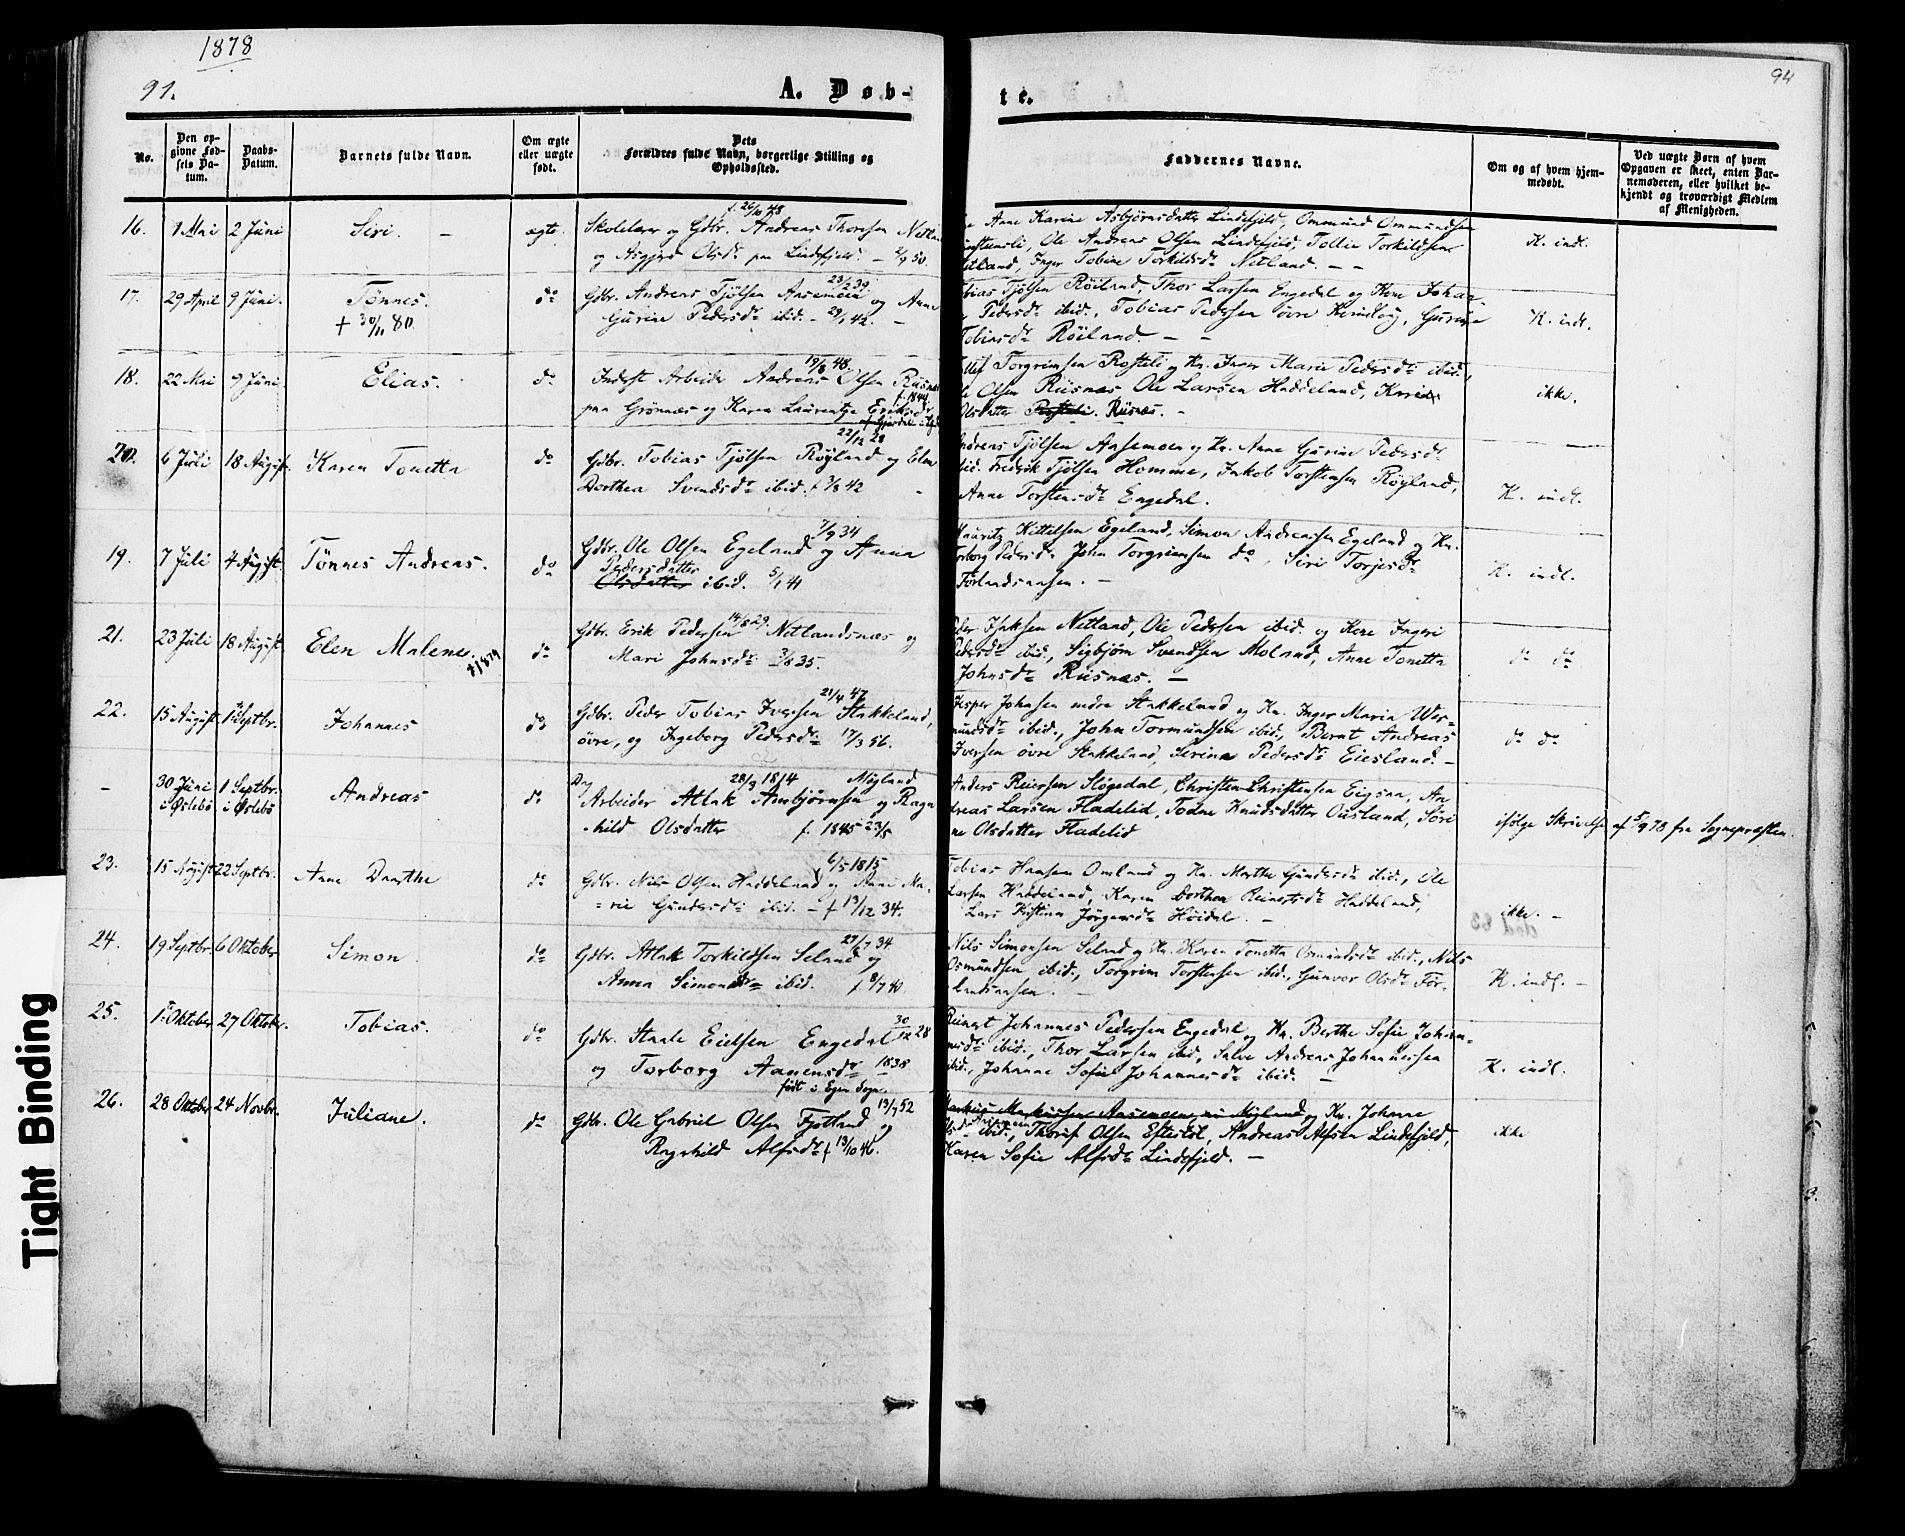 1878
91.
A. Døb-
te.
94
No.
Den op-
givne Fød-
sels Da-
tum.
Daabs-
Datum.
Barnets fulde Navn.
Om ægte
eller uægte
født.
Dets
Forældres fulde Navn, borgerlige Stilling og
Opholdssted.
Faddernes Navne.
Om og af hvem hjem-
medøbt.
Ved uægte Børn af hvem
Opgaven er skeet, enten Bar-
nemoderen, eller hvilket be-
kjendt og troværdigt Medlem
af Menigheden.
16. 1 Mai 2 Juni Siri. – ægte.
f. 26/10 48
Skolelærer og Gdbr. Andreas Thorsen Netland
og Asgjerd Olsdr paa Lindefjeld –
Anne Karine Asbjørnsdatter Lindefjeld, Ommund Ommundsen
Ole Andreas Olsen Lindefjeld, Tollie Torkildsen
Netland, Inger Tobine Torkildsdr Netland. – –
K. indl.
17. 29 April 9 Juni. Tønnes. do
+ 30/11 80.
23/2 39
Gdbr. Andreas Tjølsen Aasemoen og Anne
Gurine Pedersdr ibid. – 29/1 42. –
Tobias Tjølsen Röiland, Thor Larsen Engedal og Kone Johan-
e Pedersdr ibid., Tobias Pedersen øvre Gurine
Tobiasdr Röiland. – –
K. indl.
18. 22 Mai 9 Juni Elias. do
19/8 48.
Inderst Arbeider Andreas Olsen Riisnæs
f. 1844
paa Grønnæs og Karen Laurentze Eriksdr
Torgrimsen Rosteli og Kn. Inger Marie Pedersdr ibid.,
Ole Olsen Riisnæs Ole Larsen Haddeland, Karin
Olsdatter Rosteli. Riisnæs. –
ikke.
20. 6 Juli 18 August. Karen Tonetta do
22/12 28
Gdbr. Tobias Tjølsen Røyland og Elen
Dorthea Svendsdr ibid. f 3/8 42 –
Andreas Tjølsen Aasemoen og Kn. Anne Gurine Pedersdr
ibid. Fredrik Tjølsen Homme, Jakob Torstensen Røyland,
Anne Torstensdr Engedal.
K. indl.
19. 7 Juli 4 August. Tønnes Andreas. do
7/9 34
Gdbr. Ole Olsen Egeland og Anna
Pedersdatter
Olsdatter ibid. 5/1 41
Mauritz Kittelsen Egeland, Simon Andreassen Egeland og Kn.
Torborg Pedersdr John Torgrimsen do, Siri Torjesdr
Förlandsaasen. –
K. indl.
21. 23 Juli 18 August. Elen Malene. do
+ 1879
14/8 29.
Gdbr. Erik Pedersen Netlandsnæs og
Mari Johnsdr 3/8 35.
Peder Isaksen Netland, Ole Pedersen ibid. og Kone Ingeri
Pedersdr ibid., Sigbjørn Svendsen Moland, Anne Tonetta
Johnsdr Riisnæs. –
do do
22. 15 August 1 Septbr. Johannes do
21/4 47
Gdbr. Peder Tobias Iversen Stakkeland,
øvre, og Ingeborg Pedersdr 17/3 56.
Jesper Johnsen nedre Stakkeland og Kn. Inger Maria Wer-
mundsdr ibid., John Tormundsen ibid., Bernt Andreas
Iversen øvre Stakkeland, Serina Pedersdr Eiesland. –
do do
– 30 Juni
i Øslebø
1 Septbr.
i Øslebø
Andreas do
28/3 1814 Møyland
Arbeider Atlak Ambjørnsen og Ragn
-hild Olsdatter f. 1845 23/5
Anders Reiersen Sløgedal, Christen Christensen Eigsaa, An
dreas Larsen Fladelid, Todne Knudsdatter Ousland, Söri
ne Olsdatter Fladelid
ifølge Skrivelse af 5/9 78 fra Sognepræsten.
23. 15 August 22 Septbr. Anne Dorthe do
6/5 1815
Gdbr. Nils Olsen Haddeland og Anne Ma-
-rie Gundersdr ibid. – f 13/12 34.
Tobias Hansen Omland og Kn. Marthe Gundersdr ibid., Ole
Larsen Haddeland, Karen Dorthea Reinertsdr Haddeland,
Lars Kistina Jørgensdr Høidal. –
ikke. –
24. 19 Septbr. 6 Oktober Simon do
27/7 34
Gdbr. Atlak Torkildsen Seland og
Anna Simonsdr ibid. f 8/7 40
Nils Simonsen Seland og Kn. Karen Tonetta Osmundsdr ibid., Nils
Osmundsen ibid., Torgrim Torstensen ibid., Gunvor Olsdr För-
landsaasen. –
K. indl. –
25. 1 Oktober 27 Oktober. Tobias. do
30/12 28
Gdbr. Staale Eielsen Engedal
og Torborg Aanensdr 1838
født i Egen Sogn.
Reinert Johannes Pedersen Engedal og Kn. Berthe Sofie Johan-
nesdr ibid., Thor Larsen ibid, Salve Andreas Johannessen
ibid., Johanne Sofie Johannesdr ibid. –
K. indl.
26. 28 Oktober 24 Novbr. Juliane. do
13/7 52
Gdbr. Ole Gabriel Olsen Fjotland og
Ragnhild Alfsdr f 13/10 46.
Markus Markussen Aasemoen Møyland og Kn. Johanne
ibid., Thorif Olsen Eftestöl, Andreas Alfsen Lindefjeld,
Karen Sofie Alfsdr Lindefjeld. –
ikke
Tight Binding